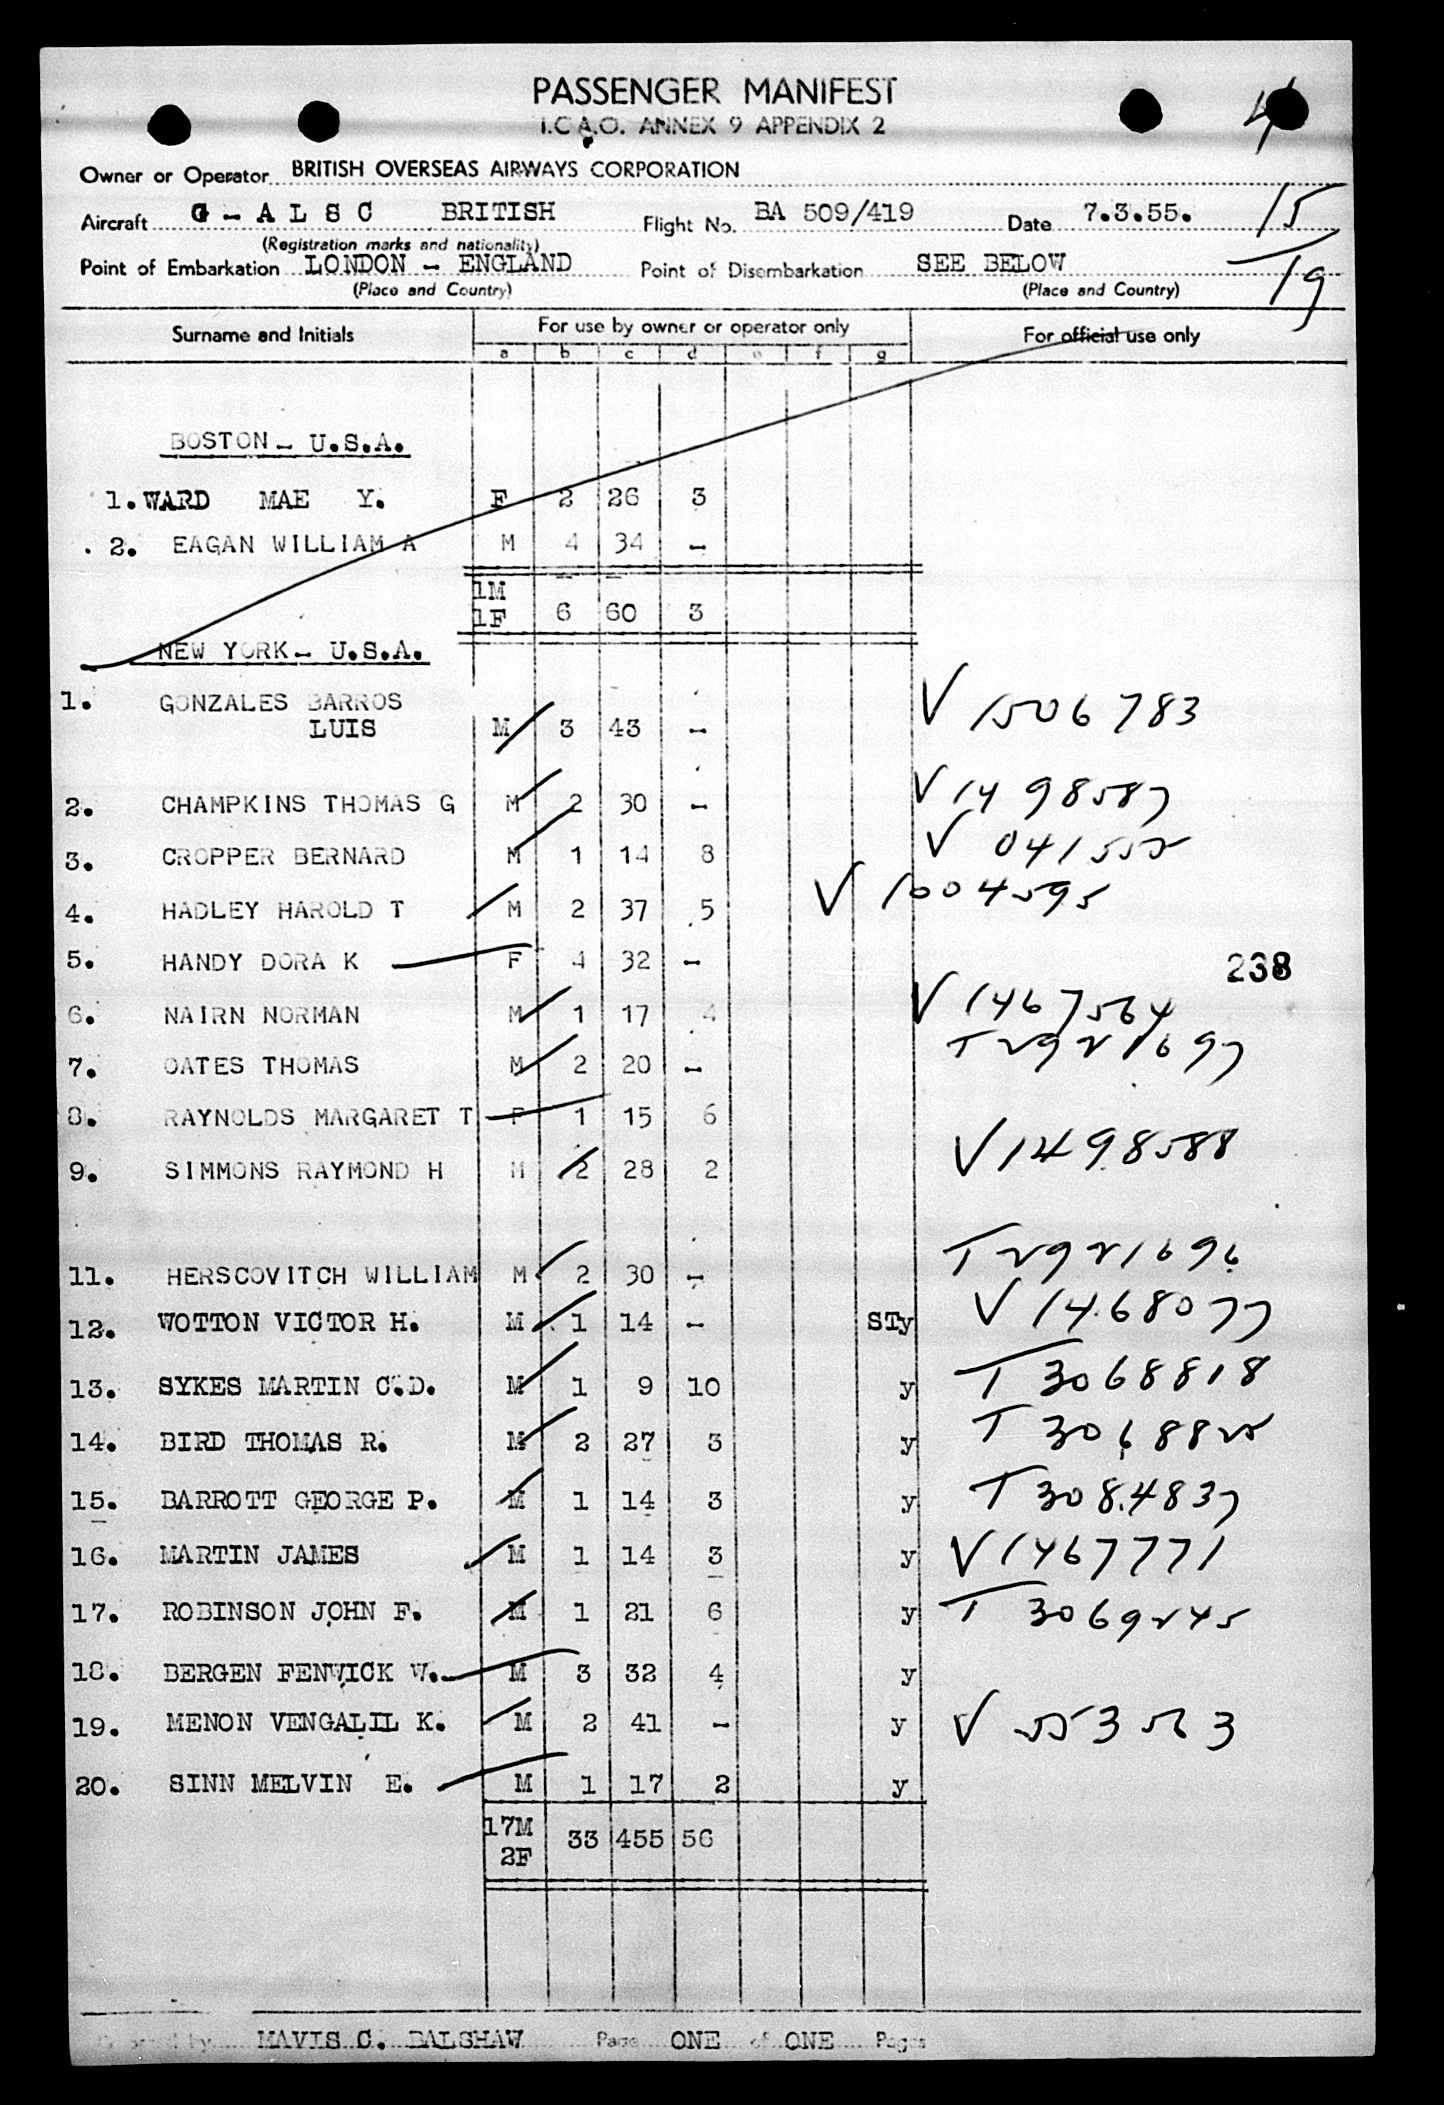 PASSENGER MANIFEST
I.C.A.O. ANNEX 9 APPENDIX 2
4
Owner or Operator BRITISH OVERSEAS AIRWAYS CORPORATION
Aircraft G - A L S C BRITISH Flight No. BA 509/419 Date 7.3.55. 15
(Registration marks and nationality)
Point of Embarkation LONDON - ENGLAND Point of Disembarkation SEE BELOW 19
(Place and Country) (Place and Country)
Surname and Initials For use by owner or operator only For official use only
a b c d e f g
BOSTON - U.S.A.
1. WARD MAE Y. F 2 26 3
2. EAGAN WILLIAM A M 4 34 -
1M
1F 6 60 3
NEW YORK - U.S.A.
1. GONZALES BARROS
LUIS M 3 43 - V 1506783
2. CHAMPKINS THOMAS G M 2 30 - V 1498587
3. CROPPER BERNARD M 1 14 8 V 041552
4. HADLEY HAROLD T M 2 37 5 V 1004595
5. HANDY DORA K F 4 32 -
238
6. NAIRN NORMAN M 1 17 4 V 1467564
7. OATES THOMAS M 2 20 - T 2921697
8. RAYNOLDS MARGARET T F 1 15 6
9. SIMMONS RAYMOND H M 2 28 2 V 1498588
11. HERSCOVITCH WILLIAM M 2 30 - T 2921696
12. WOTTON VICTOR H. M 1 14 - STy V 1468077
13. SYKES MARTIN C.D. M 1 9 10 y T 3068818
14. BIRD THOMAS R. M 2 27 3 y T 3068825
15. BARROTT GEORGE P. M 1 14 3 y T 3084837
16. MARTIN JAMES M 1 14 3 y V 1467771
17. ROBINSON JOHN F. M 1 21 6 y T 3069245
18. BERGEN FENWICK W. M 3 32 4 y
19. MENON VENGALIL K. M 2 41 - y V 553563
20. SINN MELVIN E. M 1 17 2 y
17M
2F 33 455 56
by MAVIS C. BALSHAW Page ONE of ONE Pages